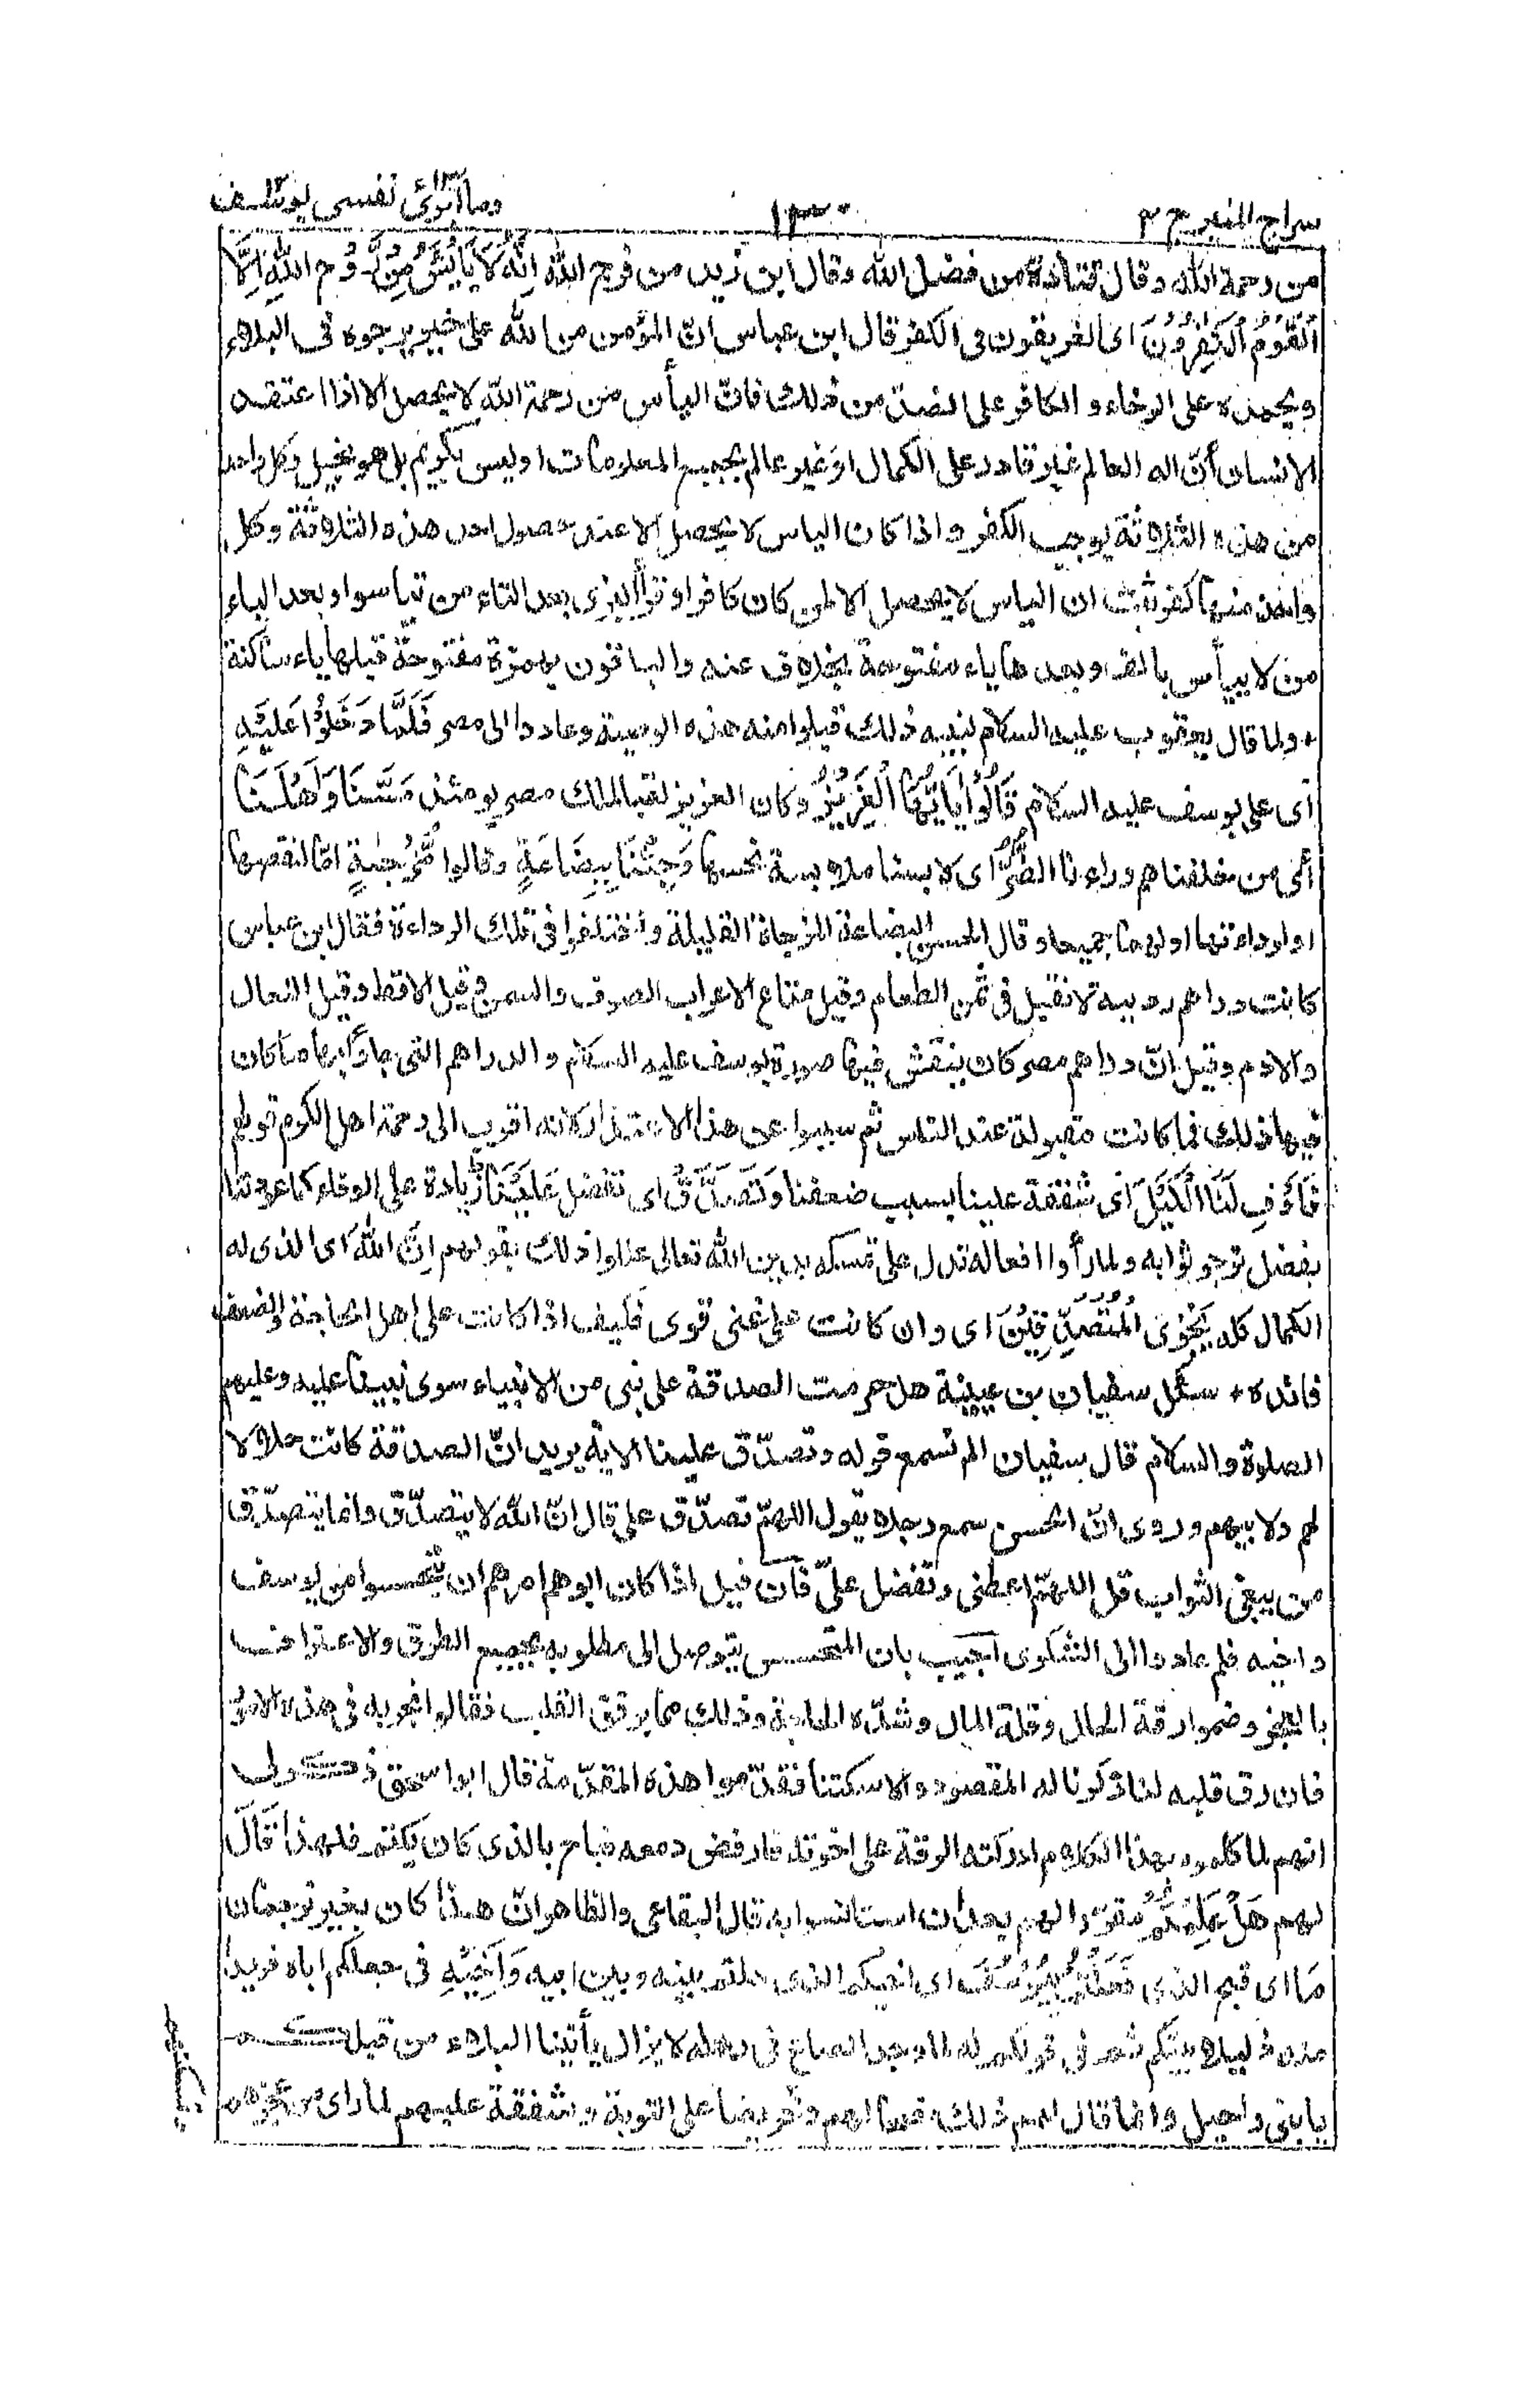 سراج المنير ج ٢
١٣٠
وما ابرئ نفسی یوسف
من رحمة الله وقال قتادة من فضل الله وقال ابن زيد من فرج الله اِنَّهٗ لَا يَايْئَسُ مِنْ رَّوْحِ اللّٰهِ اِلَّا
الْقَوْمُ الْكٰفِرُوْنَ اى الغريقون فى الكفر قال ابن عباس انّ المؤمن من الله على خير يرجوه فى البلاء
ويحمده على الرخاء و الكافر على الضدّ من ذلك فانّ اليأس من رحمة الله لا يحصل الا اذا اعتقد
الانسان أنّ اله العالم غير قادر على الكمال او غير عالم بجميع المعلومات او ليس بكريم بل هو بخيل وكل واحد
من هذه الثلاثة يوجب الكفر واذا كان الياس لا يحصل الا عند حصول احد هذه الثلاثة وكل
واحد منها كفر ثبت ان الياس لا يحصل الا لمن كان كافرا وقرأ البزى بعد التاء من تياسوا وبعد الياء
من لا ييأس بالف وبعدها ياء مفتوحة بخلاف عنه والباقون بهمزة مفتوحة قبلها ياء ساكنة
٭ ولما قال يعقوب عليه السلام لبنيه ذلك قبلوا منه هذه الوصية وعادوا الى مصر فَلَمَّا دَخَلُوْا عَلَيْهِ
اى على يوسف عليه السلام قَالُوْا يٰاَيُّهَا الْعَزِيْزُ وكان العزيز لقبا لملك مصر يومئذ مَسَّنَا وَاَهْلَنَا
اى من خلفناهم وراءنا الضُّرُّ اى لابسنا ملابسة نحسها وَجِئْنَا بِبِضَاعَةٍ وقالوا مُّزْجٰىةٍ امّا لنقصها
او لرداءتها او لهما جميعا وقال الحسن البضاعة المزجاة القليلة واختلفوا فى تلك الرداءة فقال ابن عباس
كانت دراهم رديية لا تقبل فى ثمن الطعام وقيل متاع الاعراب الصوف والسمن وقيل الاقط وقيل النعال
والادم وقيل انّ دراهم مصر كان ينقش فيها صورة يوسف عليه السلام والدراهم التى جاؤا بها ما كان
فيها ذلك فما كانت مقبولة عند الناس ثم سببوا عن هذا الاعتذار لانه اقرب الى رحمة اهل الكرم قولهم
فَاَوْفِ لَنَا الْكَيْلَ اى شفقة علينا بسبب ضعفنا وَتَصَدَّقْ اى تفضل عَلَيْنَا زيادة على الوفاء كما عودتنا
بفضل نرجو ثوابه ولما رأوا افعاله تدل على تمسكه بدين الله تعالى عللوا ذلك بقولهم اِنَّ اللّٰهَ اى الذى له
الكمال كله يَجْزِى الْمُتَصَدِّقِيْنَ اى وان كانت على غنى قوى فكيف اذا كانت على اهل الحاجة والضعف
فائده ٭ سئل سفيان بن عيينة هل حرمت الصدقة على نبى من الانبياء سوى نبينا عليه وعليهم
الصلوة والسلام قال سفيان الم تسمع قوله وتصدّق علينا الاية يريد انّ الصدقة كانت حلالا
لهم ولابيهم وروى انّ الحسن سمع رجلا يقول اللهمّ تصدّق على قال انّ الله لا يتصدّق وانما يتصدّق
من يبغى الثواب قل اللهمّ اعطنى وتفضل علىّ فان قيل اذا كان ابوهم امرهم ان يتحسسوا من يوسف
واخيه فلم عادوا الى الشكوى اجيب بان المتحسس يتوصل الى مطلوبه بجميع الطرق والاعتراف
بالعجز وضموا رقة الحال وقلة المال وشدّه الحاجة وذلك مما يرقق القلب فقالوا نجربه فى هذه الامور
فان رق قلبه لنا ذكرنا له المقصود والا سكتنا فقدّموا هذه المقدّمة قال ابو اسحق ذكر لى
انهم لما كلموه بهذا الكلام ادركته الرقة على اخوته فارفض دمعه فباح بالذى كان يكتم فلهذا قَالَ
لهم هَلْ عَلِمْتُمْ مقررا لهم بعد أن استانسوا به قال البقاعى والظاهر انّ هذا كان بغير ترجمان
مَا اى قبح الذى فَعَلْتُمْ بِيُوْسُفَ اى اخيكم الذى حلتم بينه وبين ابيه وَاَخِيْهِ فى جعلكم اياه فريدا
منه ذليلا بينكم ثم فى قولكم له لما وجد الصاع فى رحله لا يزال يأتينا البلاء من قبلكم
يا بنى راحيل وانما قال لهم ذلك نصحا لهم وتحريضا على التوبة وشفقة عليهم لما راى من عجزهم